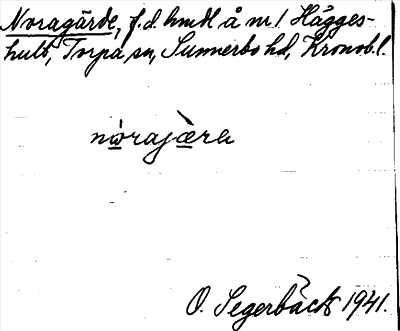 Noragärde, f.d. hmdl å nr 1 Hägges-
hult, Torpa sn, Sunnerbo hd, Kronob. l.
nórajæ̀ra
O. Segerbäck 1941.